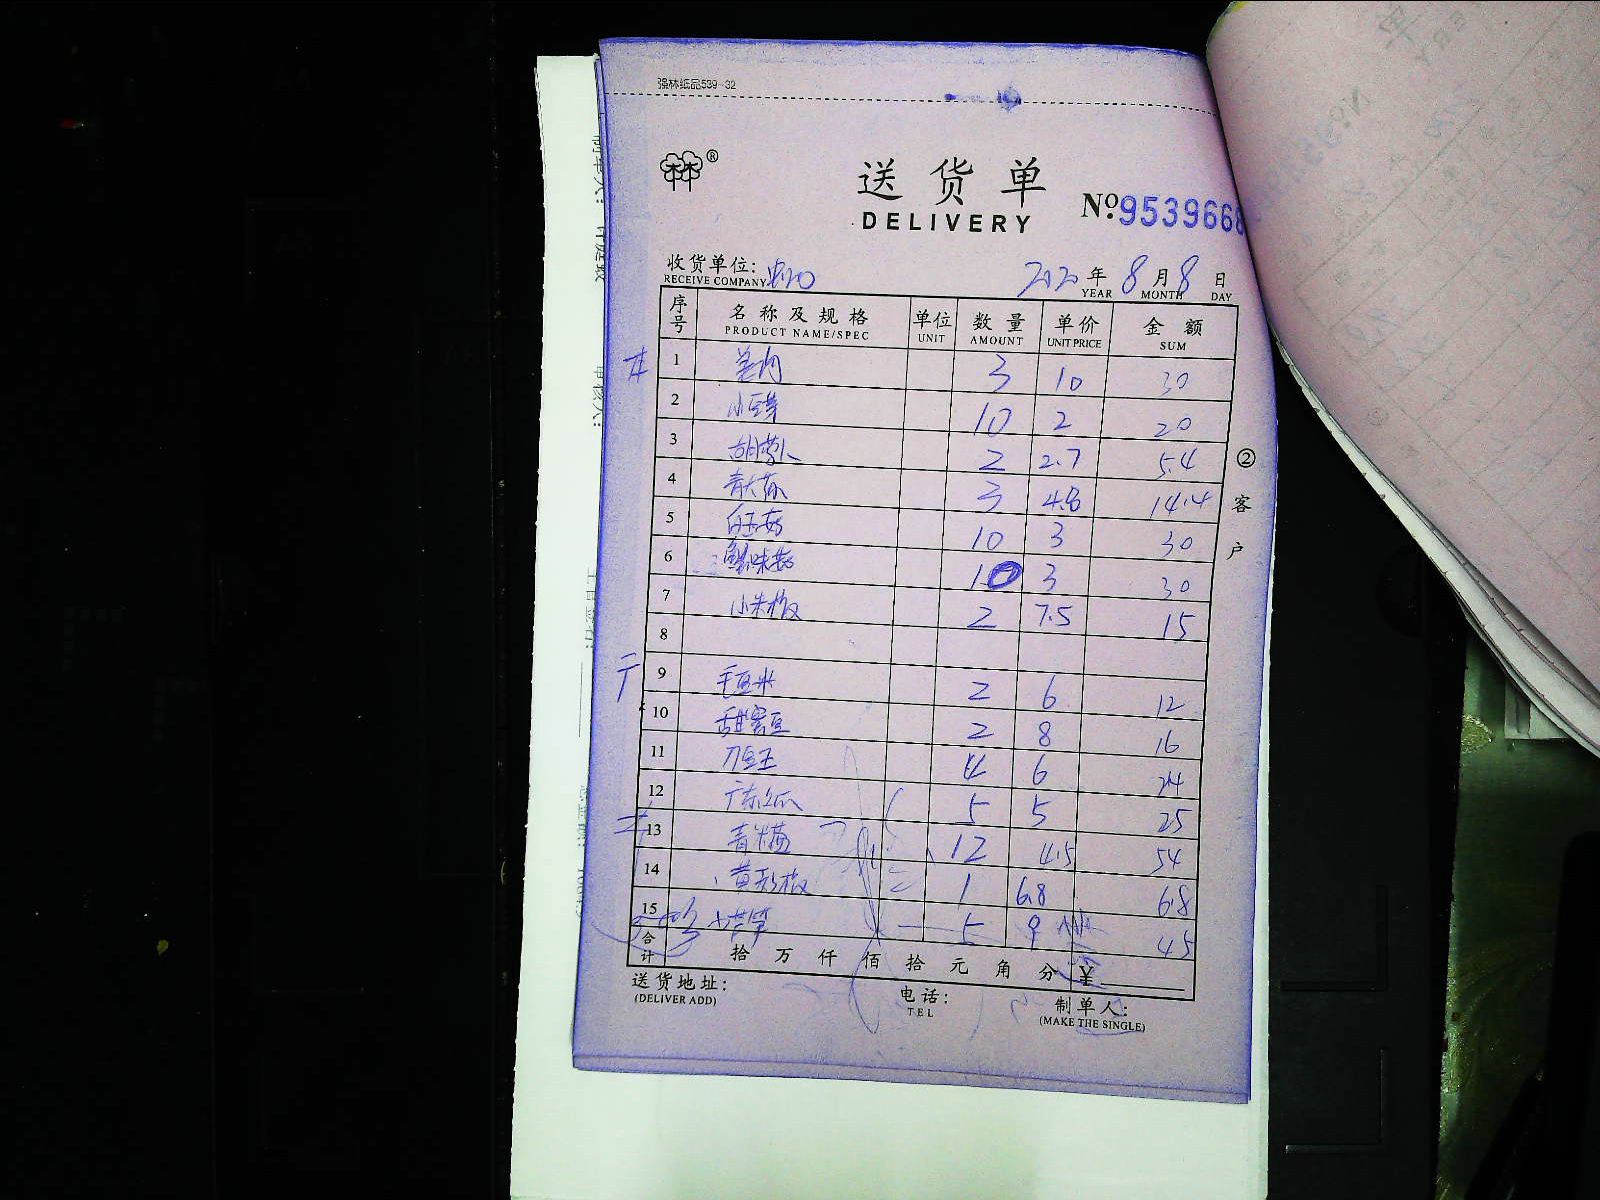 强林纸品539-32
®
送货单
DELIVERY
No.9539668
收货单位:
RECEIVE COMPANY
2020年8月8日
YEAR MONTH DAY
序号 名称及规格 单位 数量 单价 金额
PRODUCT NAME/SPEC UNIT AMOUNT UNIT PRICE SUM
1 姜肉 3 10 30
2 小豆芽 10 2 20
3 胡萝卜 2 2.7 5.4
4 3 4.8 14.4
5 白玉菇 10 3 30
6 鲜味菇 10 3 30
7 小米椒 2 7.5 15
8
9 毛豆米 2 6 12
10 甜蜜豆 2 8 16
11 刀豆 4 6 24
12 广东 5 5 25
13 青 12 4.5 54
14 黄彩椒 1 6.8 6.8
15 小芦笋 5 9 45
合计 拾万仟佰拾元角分 ¥
② 客户
送货地址:
(DELIVER ADD)
电话:
TEL
制单人:
(MAKE THE SINGLE)